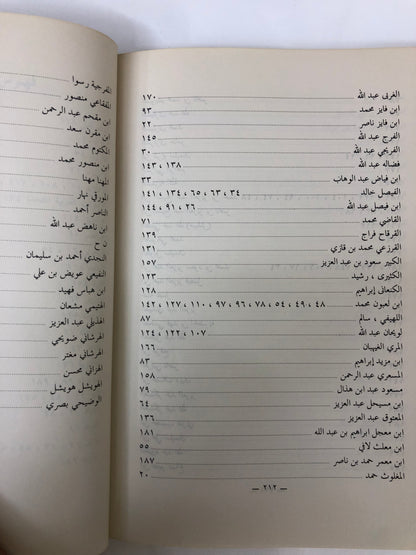 الغربى عبد الله ١٧٠
ابن فايز محمد ٩٣
ابن فايز ناصر ٢٢
الفرج عبد الله ١٤٥
الفريحي عبد الله ٣٠
فضاله عبد الله ١٣٨ ، ١٤٣
ابن فياض عبد الوهاب ٧٣
الفيصل خالد ٣٤ ، ٦٣ ، ٦٥ ، ١٣٤ ، ١٤١
ابن فيصل عبد الله ٢٦ ، ٩١ ، ١٤٤
القاضي محمد ٧١
القرقاح فراج ١٣٩
القرزعي محمد بن قازي ١٣١
الكبير سعود بن عبد العزيز ١٥٧
الكثيرى ، رشيد ١٢٣
الكنعانى إبراهيم ١٢٨
ابن لعبون محمد ٤٨ ، ٤٩ ، ٥٤ ، ٧٨ ، ٩٦ ، ٩٧ ، ١١٠ ، ١٢٧ ، ١٤٢
اللهيفي ، سالم ٨٧
لويحان عبد الله ١٠٧ ، ١٢٢ ، ١٢٤
المري الغيهبان ١٦٦
ابن مزيد إبراهيم ٨٣
المسعري عبد الرحمن ١٥٨
مسعود عبد ابن هذال ٧٩
ابن مسيحل عبد العزيز ٦٤
المعتوق عبد العزيز ١٣٦
ابن معجل ابراهيم بن عبد الله ١٨١
ابن معلث لافي ٥٥
ابن معمر حمد بن ناصر ١٨٧
المغلوث حمد ٢٠
— ٢١٢ —
المفرجية رسوا
المفقاعي منصور
ابن مفحم عبد الرحمن
ابن مقرن سعد
المكتوم محمد
ابن منصور محمد
المهنا مهنا
المورقي نهار
الناصر أحمد
ابن ناهض عبد الله
ن ح
النجدي أحمد بن سليمان
النفيمي عويض بن علي
ابن هباس فهيد
الهتيمي مشعان
الهذيلي عبد العزيز
الهرشاني ضويحي
الهرشاني مغتر
الهزاني محسن
الهويشل هويشل
الوضيحي بصري